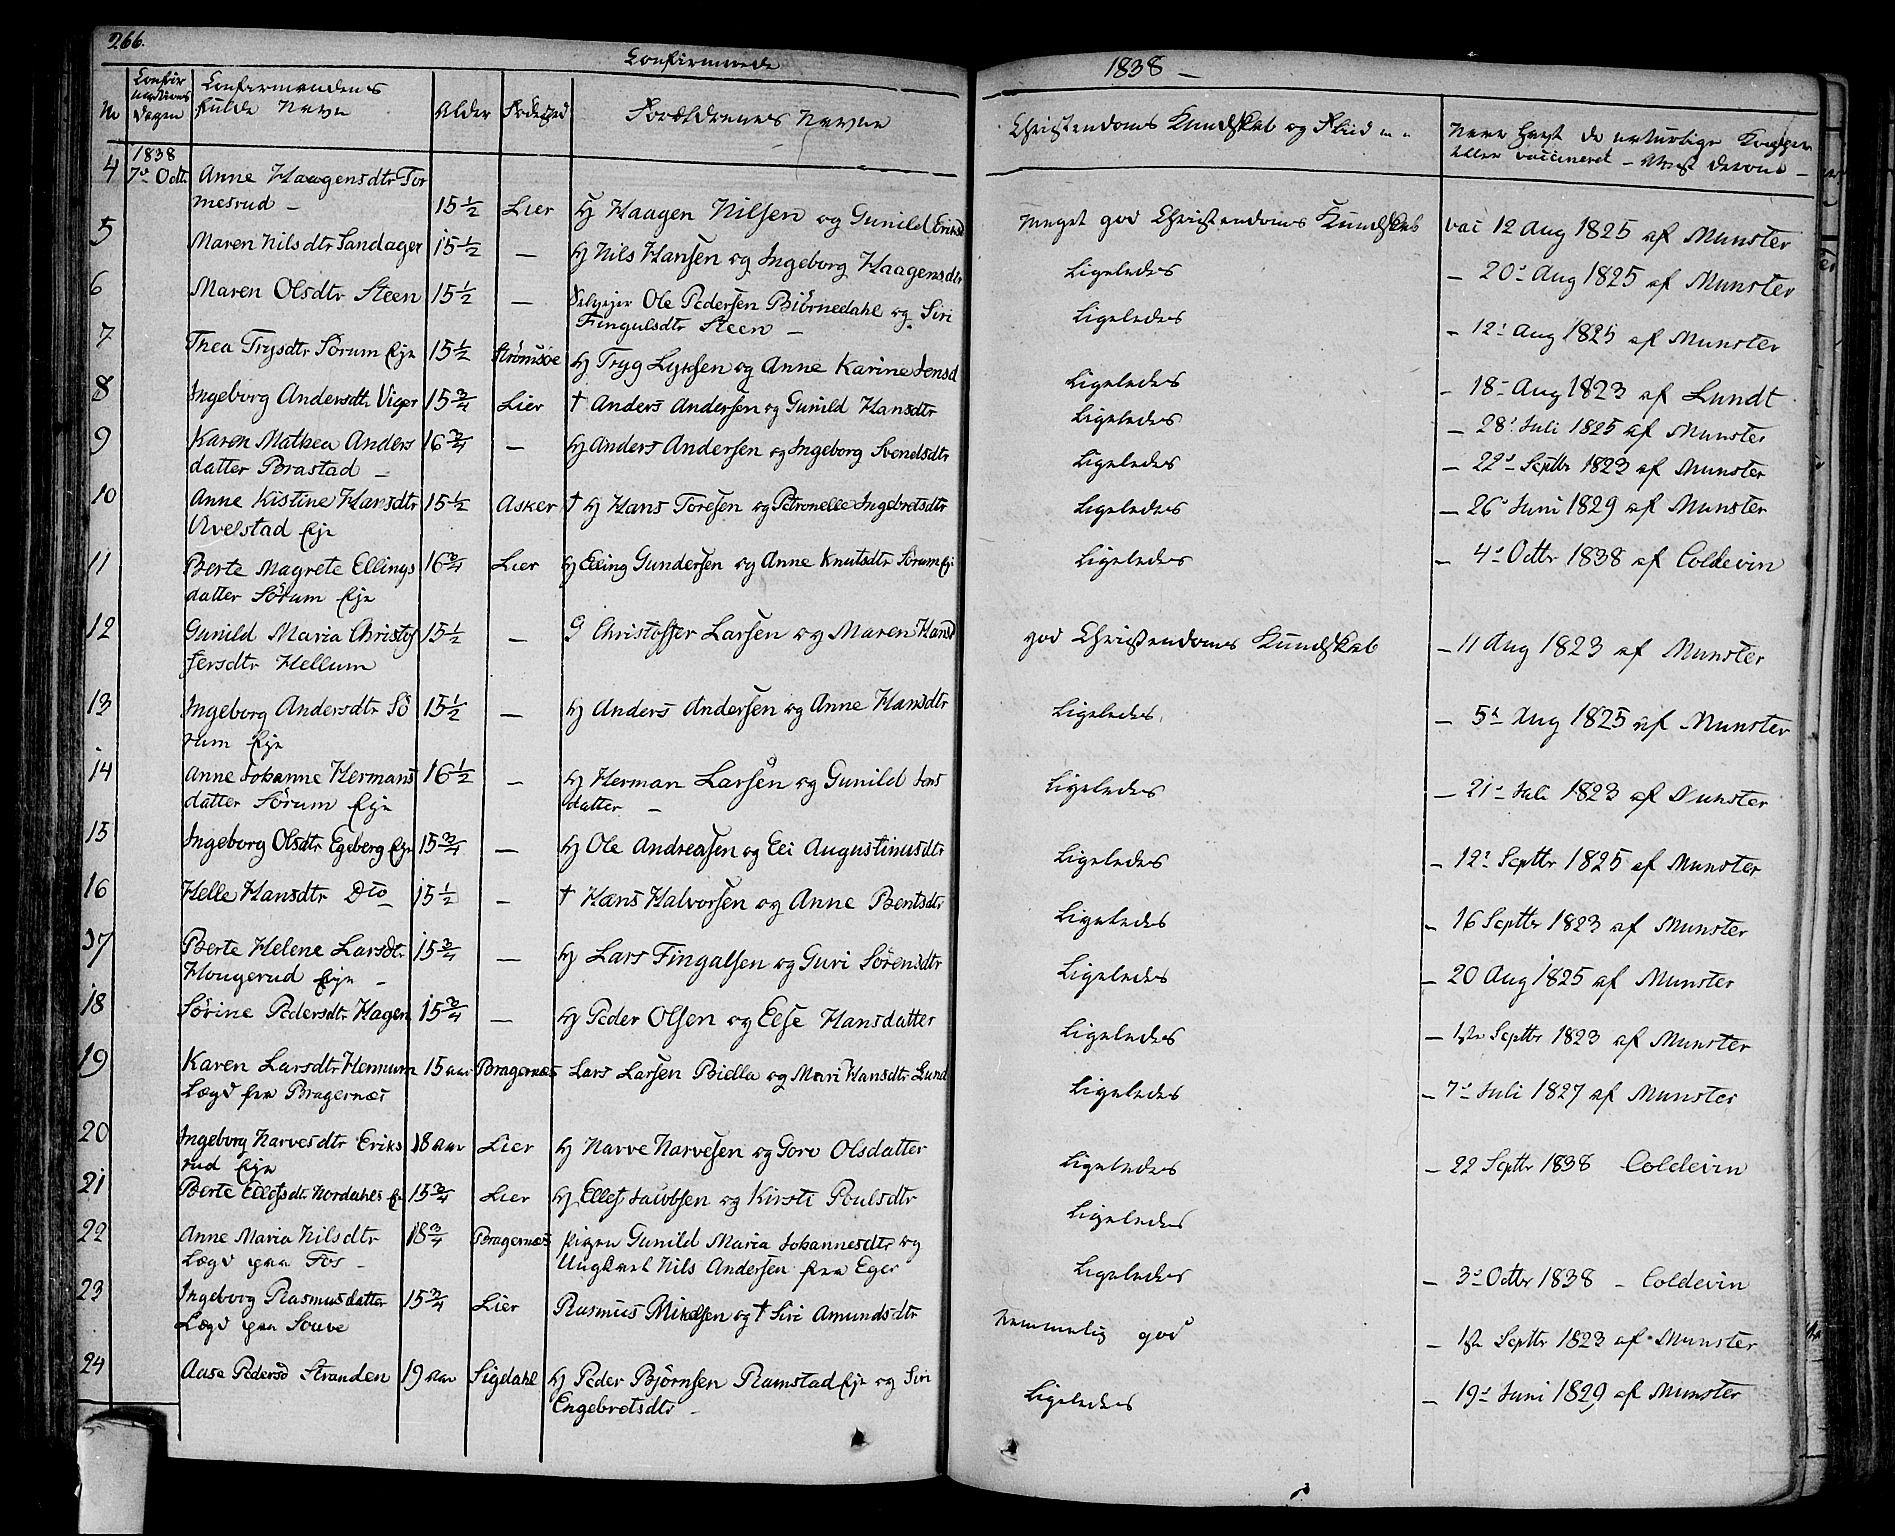 266.
Confirmerede
1838 –
No
Confir
mations
Dagen
Confirmandenes
fulde Navn
Alder
Fødested
Forældrenes Navne
Christendoms Kundskab og Fliid
Naar havt de naturlige Kopper
eller vaccineret – Attest derom –
4 1838
7de Octr. Anne Haagensdtr Tor
mesrud – 15½ Lier Hj Haagen Nilsen og Gunild Eriksd Meget god Christendoms Kundskab vac 12 Aug 1825 af Munster
5 Maren Nilsdtr Sandager 15½ – Hj Nils Hansen og Ingeborg Haagensdtr Ligeledes – 20de Aug 1825 af Munster
6 Maren Olsdtr Steen 15½ – Selvejer Ole Pedersen Biörnedahl og Siri
Fingulsdtr Steen – Ligeledes – 12te Aug 1825 af Munster
7 Thea Trysdtr Sörum Eje 15½ Strömsöe Hj Tryg Lyksen og Anne Karine Jensd Ligeledes – 18– Aug 1823 af Lundt
8 Ingeborg Andersdtr Viger 15¾ Lier † Anders Andersen og Gunild Hansdtr Ligeledes – 28de Juli 1825 af Munster
9 Karen Mathea Anders
datter Brastad – 16¾ – Hj Anders Andersen og Ingeborg Svendsdtr Ligeledes – 22de Septbr 1823 af Munster
10 Anne Kistine Hansdtr
Ulvelstad Eje 15½ Asker † Hj Hans Toresen og Petronelle Ingebretsdtr Ligeledes – 26de Juni 1829 af Munster
11 Berte Magrete Ellings
datter Sörum Eje 16¾ Lier Hj Elling Gundersen og Anne Knutsdtr Sörum Ej Ligeledes – 4de Octbr 1838 af Coldevin
12 Gunild Maria Christof
fersdtr Hellum 15½ – G Christoffer Larsen og Maren Hansd god Christendoms Kundskab – 11 Aug 1823 af Munster
13 Ingeborg Andersdtr Sö
rum Eje 15½ – Hj Anders Andersen og Anne Hansdtr Ligeledes – 5te Aug 1825 af Munster
14 Anne Johanne Hermans
datter Sörum Eje 16½ – Hj Herman Larsen og Gunild Jens
datter – Ligeledes – 21de Juli 1823 af Munster
15 Ingeborg Olsdtr Egeberg Eje 15¾ – Hj Ole Andreasen og Eli Augustinusdtr Ligeledes – 12te Septbr 1825 af Munster
16 Helle Hansdtr Dto 15½ – † Hans Halvorsen og Anne Bentsdtr Ligeledes – 16 Septbr 1823 af Munster
17 Berte Helene Larsdtr
Hougerud Eje – 15¾ – Hj Lars Fingalsen og Guri Sörensdtr Ligeledes – 20 Aug 1825 af Munster
18 Sörine Pedersdtr Hagen 15¾ – Hj Peder Olsen og Else Hansdatter Ligeledes – 1ste Septbr 1823 af Munster
19 Karen Larsdtr Hennum
Lægd fra Bragernæs 15 aar Bragernæs Lars Larsen Biella og Mari Hansdtr Lund Ligeledes – 7de Juli 1827 af Munster
20 Ingeborg Narvesdtr Eriks
rud Eje 18 aar Lier Hj Narve Narvesen og Goro Olsdatter Ligeledes – 22 Septbr 1838 Coldevin
21 Berte Ellefsdtr Nordahls Ej 15¾ Lier Hj Ellef Jacobsen og Kirsti Poulsdtr Ligeledes
22 Anne Maria Nilsdtr
Lægd paa Fos – 18¾ Bragernæs Pigen Gunild Maria Johannesdtr og
Ungkarl Nils Andersen fra Eger Ligeledes – 3de Octbr 1838 – Coldevin
23 Ingeborg Rasmusdatter
Lægd paa Souve 15¾ Lier Rasmus Mikelsen og † Siri Amundsdtr Nemmelig god – 1ste Septbr 1823 af Munster
24 Aase Pedersd Stranden 19 aar Sigdahl Hj Peder Björnsen Ramstad Eje og Siri
Engebretsdtr – Ligeledes – 19de Juni 1829 af Munster